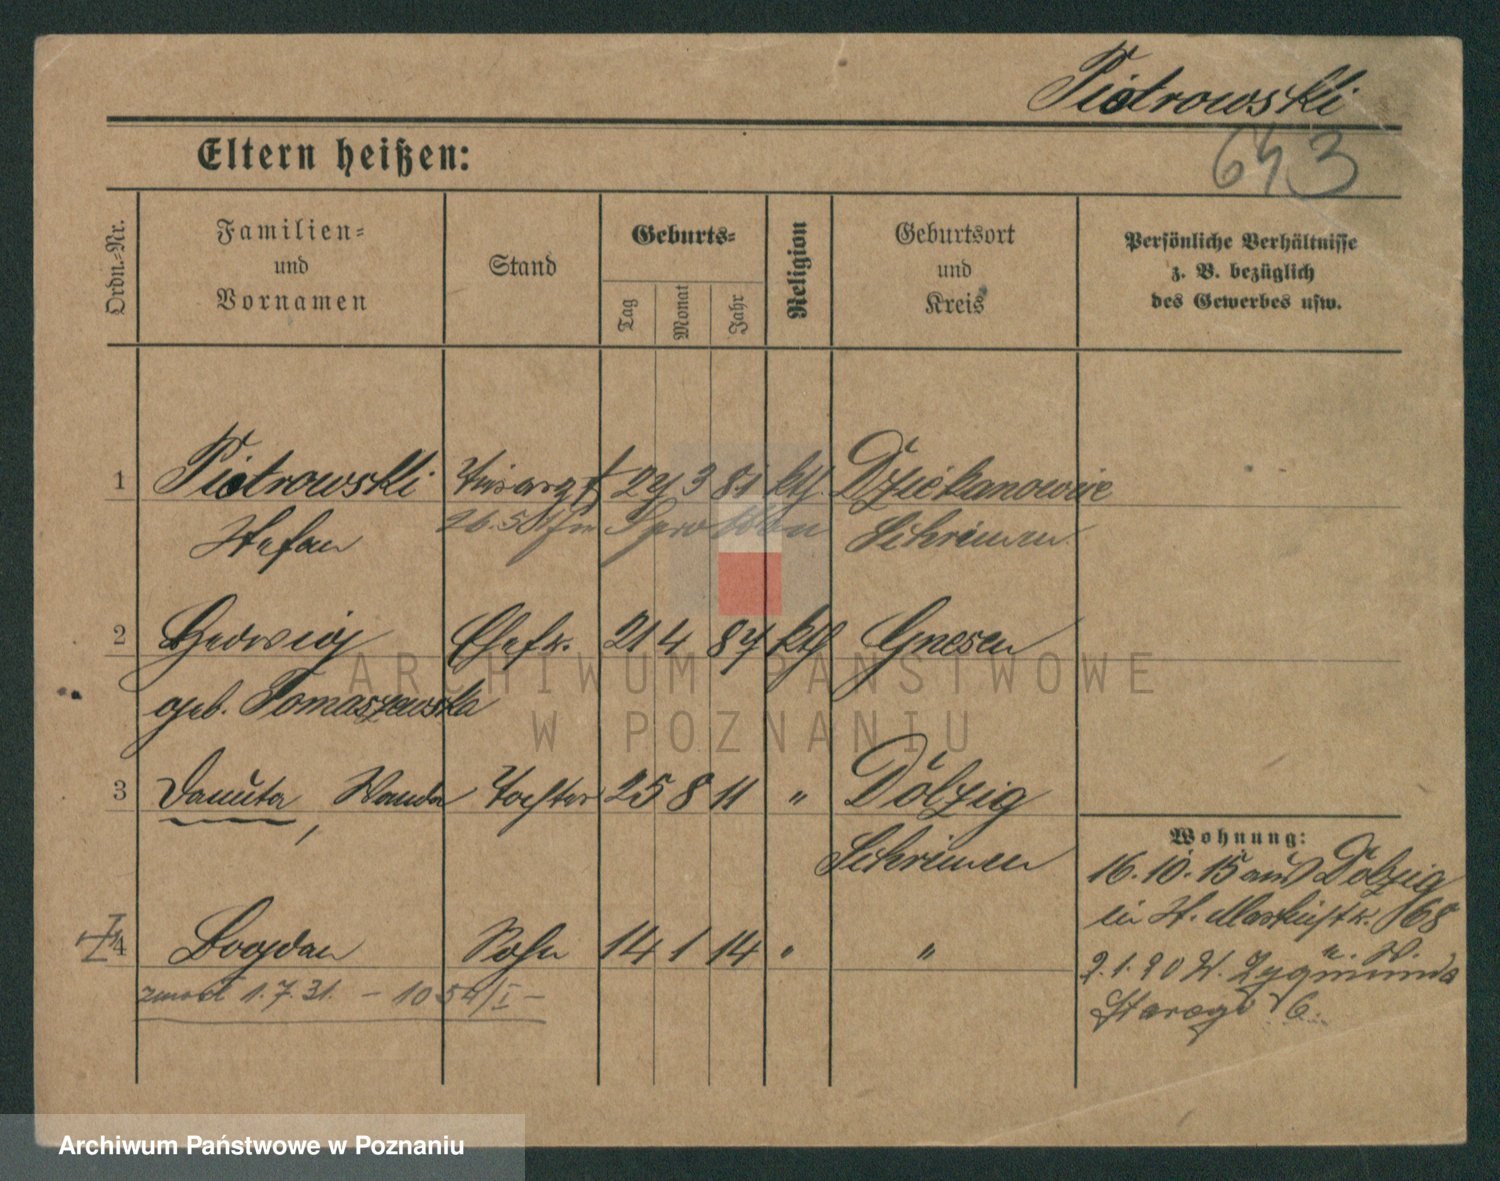 Piotrowski
643
Eltern heißen:
Ordn.-Nr.
Familien-
und
Vornamen
Stand
Geburts-
Tag
Monat
Jahr
Religion
Geburtsort
und
Kreis
Persönliche Verhältnisse
z. B. bezüglich
des Gewerbes usw.
1 Piotrowski Tierarzt 27 3 81 kth.
Stefan Schrimm
2 Hedwig Ehefr. 21 4 87 kth Gnesen
geb. Tomaszewska
3 Danuta, Wanda Tochter 25 8 11 " Dolzig
Schrimm
4 Bogdan Sohn 14 1 14 " "
zmarł 1.7.31. - 1054/I -
Wohnung:
16.10.15 aus Dolzig
68
2.1.20 W. Zygmunta
Starego 6.
ARCHIWUM PAŃSTWOWE
W POZNANIU
Archiwum Państwowe w Poznaniu